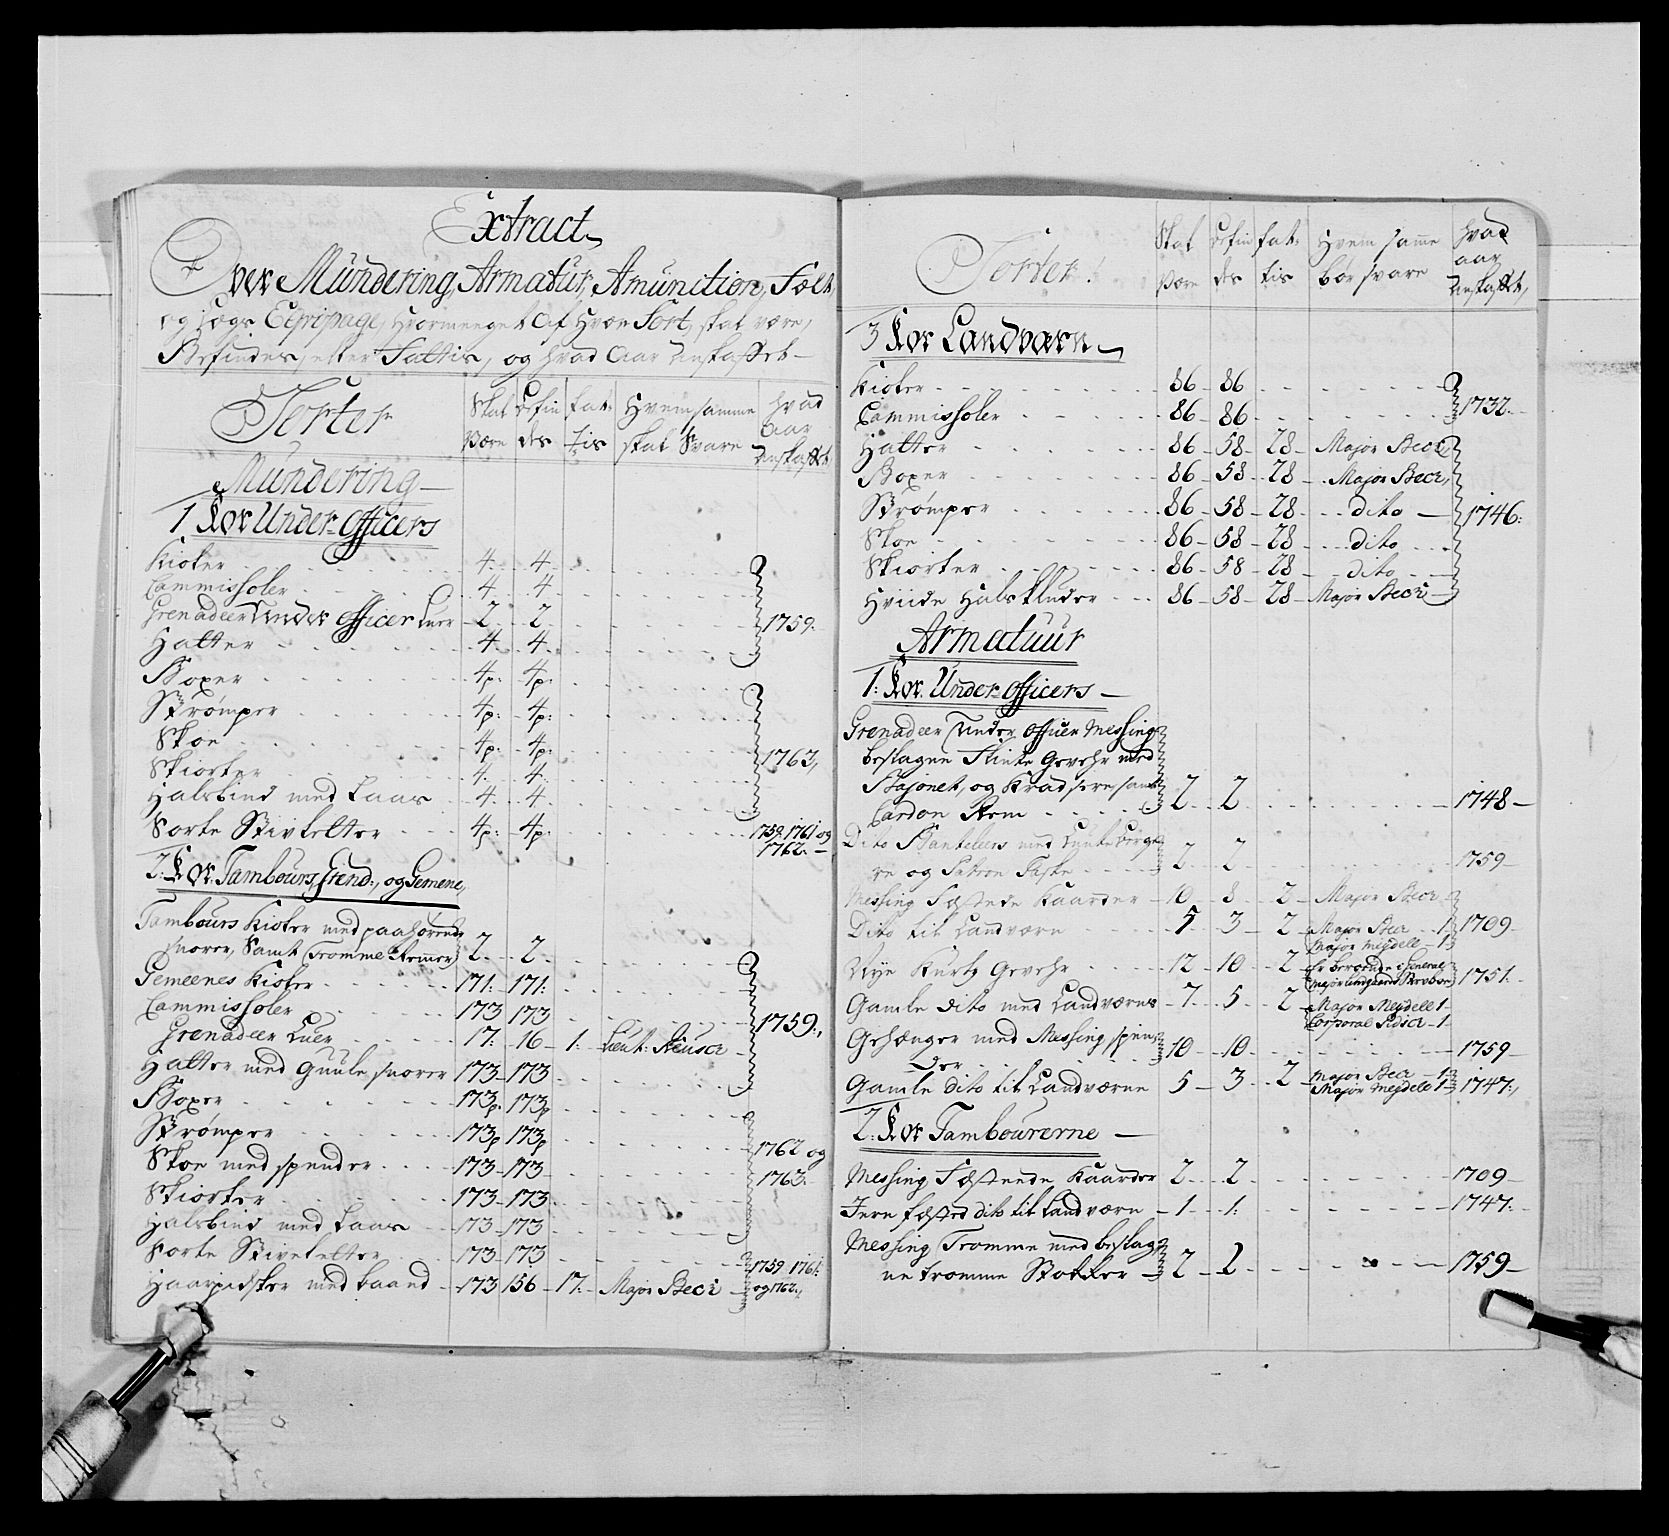 Extract
Over Mündering, Armatür, Amünition, Felt
og søgs Eqvipage, hvormeeget Af hver Sort, skal være,
Befindes, eller Fattis, og hvad Aar Anskaffet
Sorter
Skal være
Befindes
fattis
Hvem samme skal Svare
hvad Aar Anskaffet
Mündering
1. For Under-Officers
Kioler 4. 4.
Cammisholer 4. 4.
Grenadeer Under Officer Luer 2. 2.
Hatter 4. 4.
1759.
Boxer 4p: 4p:
Strømper 4p: 4p:
Skoe 4p: 4p:
Skiorter 4. 4.
Halsbind med Laas 4. 4.
1763,
Sorte Stivletter 4p: 4p: 1759. 1761 og 1762.
2. For Tambours, Grend:, og Gemene,
Tambours Kioler med paahørende
snorer, Samt Tromme Remmer 2. 2.
Gemeenes Kioler 171. 171.
Cammisholer 173 173
Grenadeer Luer 17. 16 1. Lieut:
Hatter med Guule snorer 173 173
1759.,
Boxer 173p. 173p
Strømper 173p 173p
Skoe med spender 173 173
Skiorter 173 173
Halsbind med Laas 173 173
1762 og 1763.
Sorte Stivletter 173 173
Haarpidsker med baand 173 156 17. Major Beck
1759. 1761: og 1762.,
Sorter
Skal være
Befindes
fattis
Hvem samme bør svare
hvad aar Anskaffet,
3 For Landværn
Kioler 86 86
Cammisholer 86 86
1732.
Hatter 86 58 28 Major Beck
Boxer 86 58 28 Major Beck,
Strømper 86 58 28 dito
Skoe 86 58 28 dito
Skiorter 86 58 28 dito
Hviide Halskluder 86 58 28 Major Beck
1746.
Armatuur
1: For Under-Officers
Grenadeer Under Officer Messing
beslagne Flinte Gevehr med
Bajonet, og Kradsere samt
Cardon Rem 2. 2 1748
Dito Banteleers med Luntebærge
re og Patron Taske 2 2 1759
Messing Fæstede Kaarder 10 8 2 Major Beck
Dito til Landværn 5 3 2 Major Beck 1 Major Mejdell 1 1709
Nye Kurtz Gevehr 12 10 2 1751.
Gamle dito med Landværnes 7 5 2 Major Mejdell 1 Corporal 1
Gehænger med Messing spen
der 10 10 1759
Gamle dito til Landværne 5 3 2 Major Beck 1 Major Mejdell 1 1747.,
2. For Tambourerne
Messing Fæstede Kaarder 2 2 1709
Jern fæsted dito til Landværn 1 1. 1747.
Messing Tromme med beslag
ne tromme Stokker 2 2 1759